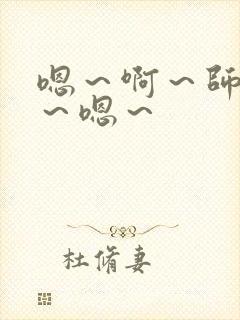 嗯～啊～師
～嗯～
杜脩妻